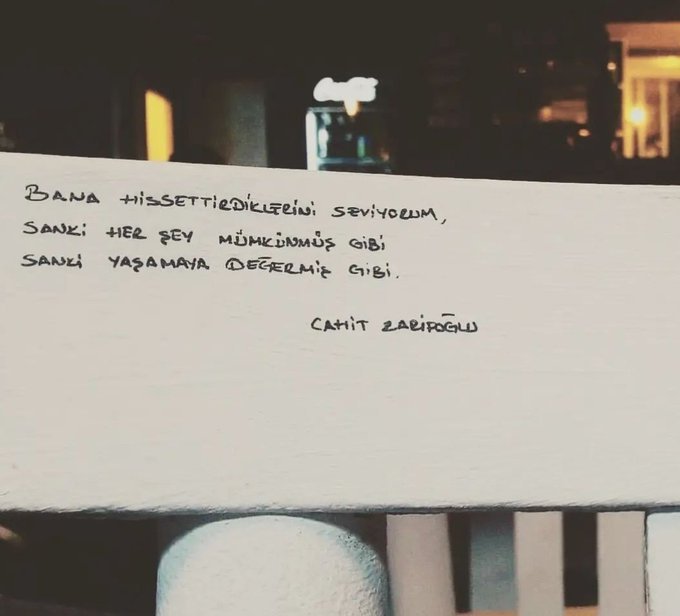 BANA HİSSETTİRDİKLERİNİ SEVİYORUM,
SANKİ HER ŞEY MÜMKÜNMÜŞ GİBİ
SANKİ YAŞAMAYA DEĞERMİŞ GİBİ.
CAHİT ZARİFOĞLU